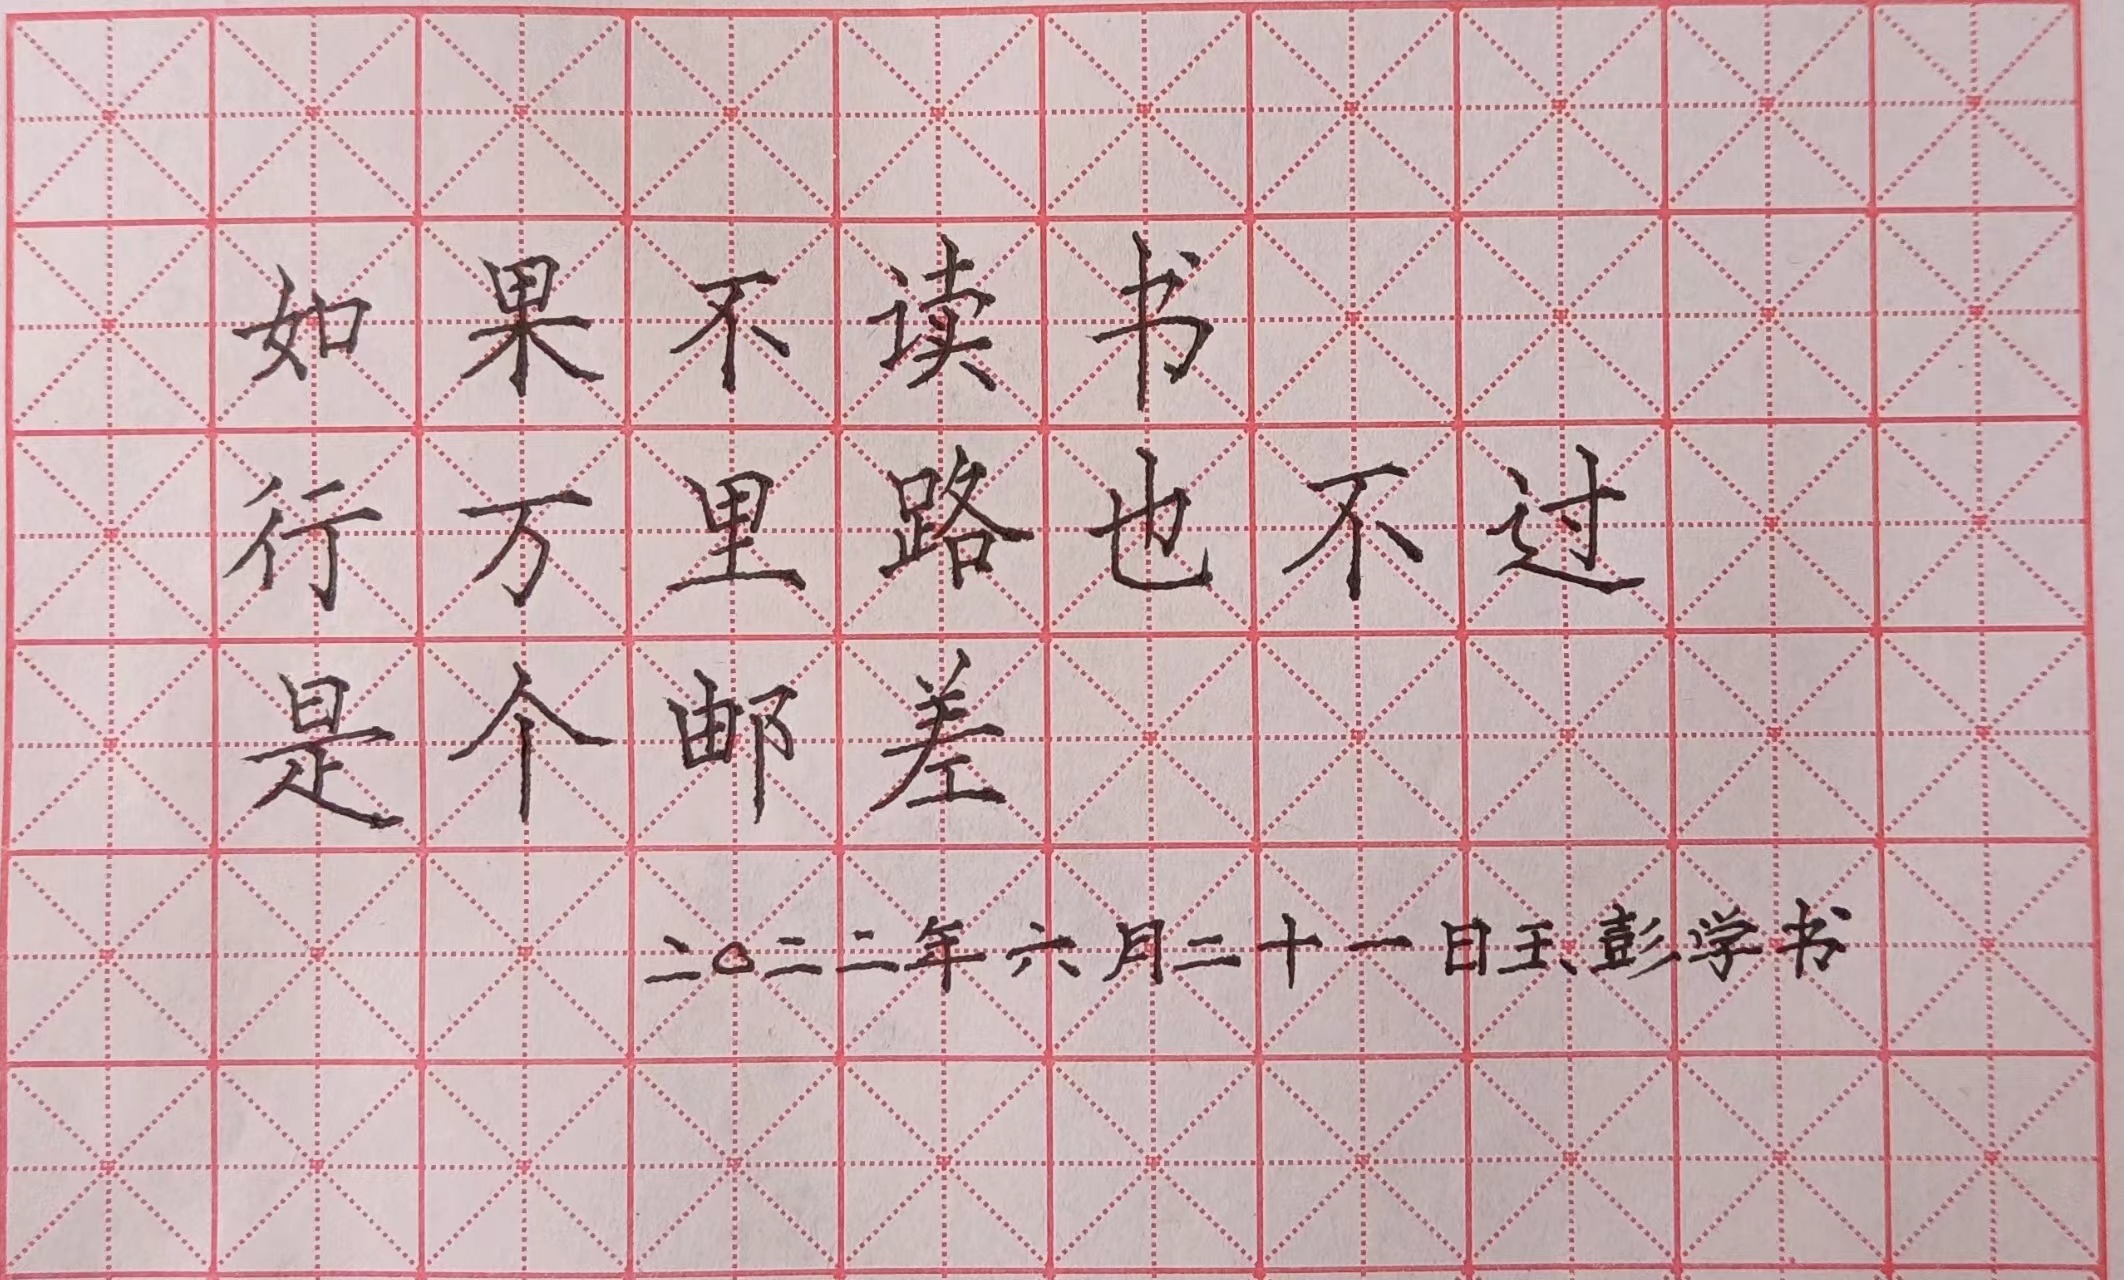 如果不读书
行万里路也不过
是个邮差
二〇二二年六月二十一日王彭学书